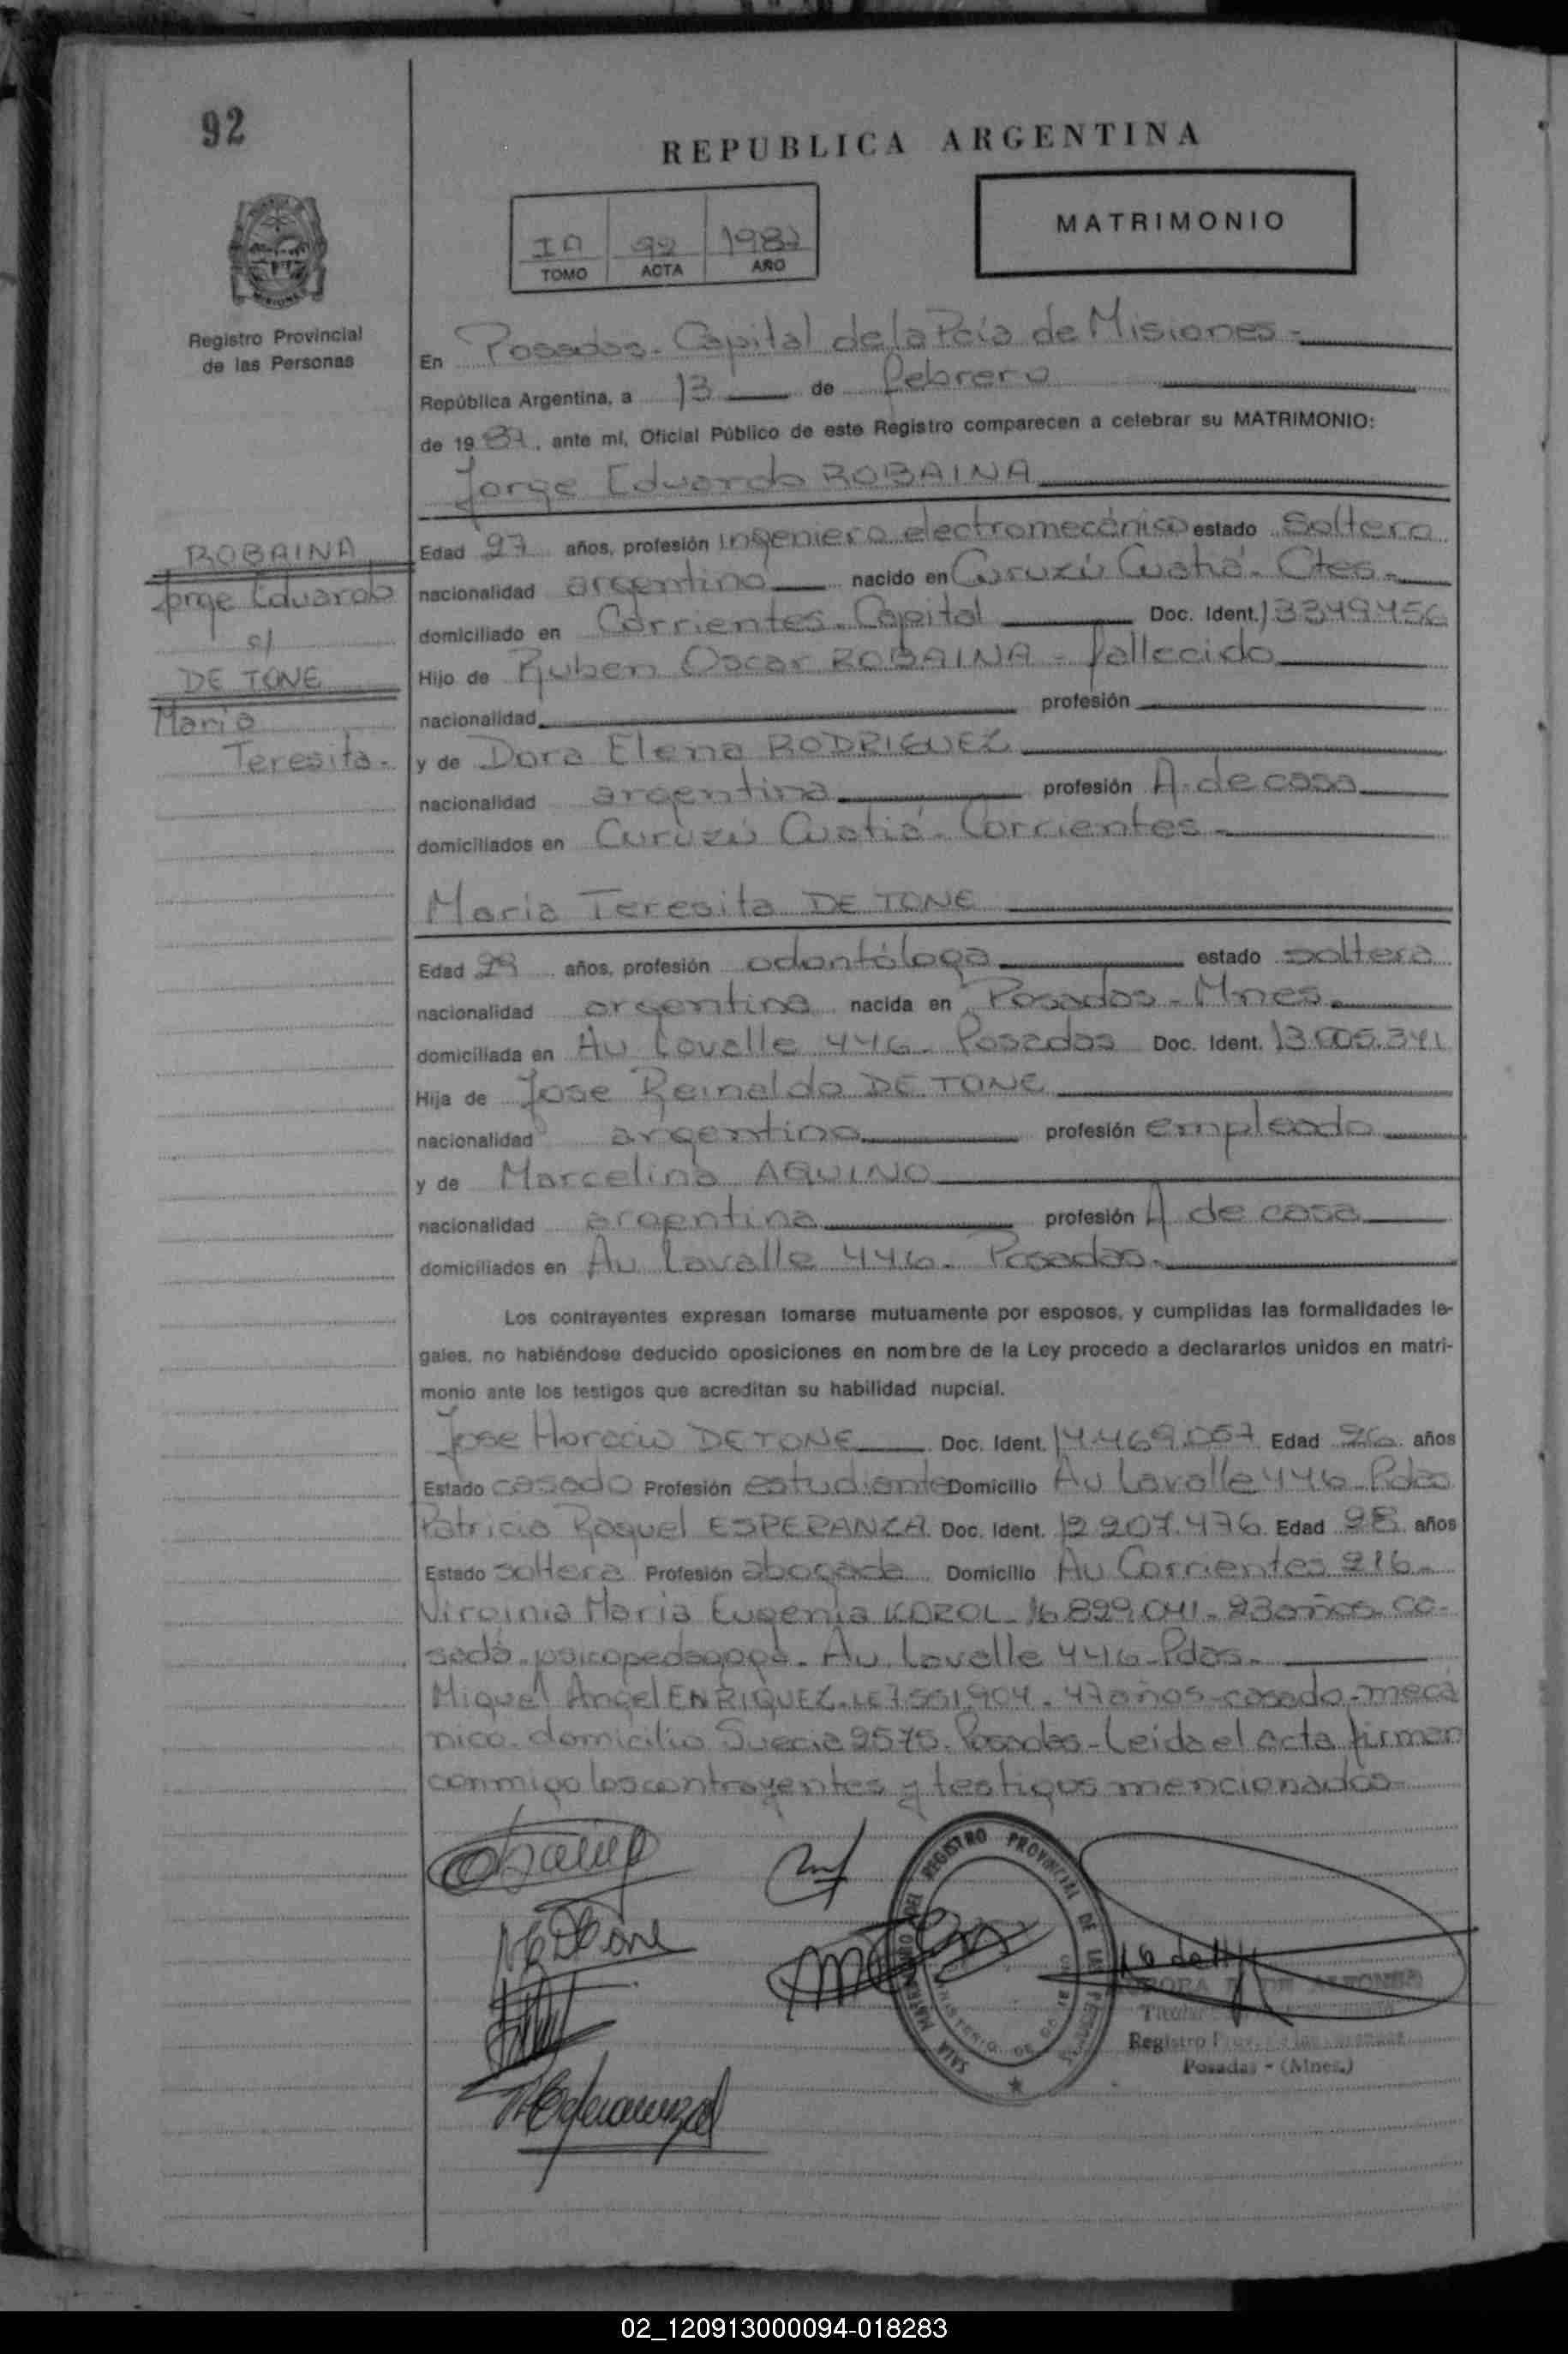 92
REPUBLICA ARGENTINA
MATRIMONIO
92 1987
TOMO ACTA AÑO
MISIONES
Registro Provincial
de las Personas
En Posadas. Capital de la Pcia de Misiones
República Argentina, a 13 de febrero
de 1987, ante mí, Oficial Público de este Registro comparecen a celebrar su MATRIMONIO:
Jorge Eduardo ROBAINA
ROBAINA
Jorge Eduardo
c/
DE TONE
Maria
Teresita.
Edad 27 años, profesión ingeniero electromecánico estado Soltero
nacionalidad argentino nacido en Curuzú Cuatiá. Ctes.
domiciliado en Corrientes. Capital Doc. Ident. 13349.456
Hijo de Ruben Oscar ROBAINA - fallecido
nacionalidad profesión
y de Dora Elena RODRIGUEZ
nacionalidad argentina profesión A. de casa
domiciliados en Curuzú Cuatiá. Corrientes.
Maria Teresita DE TONE
Edad años, profesión odontóloga estado soltera
nacionalidad argentina nacida en Posadas - Mnes.
domiciliada en Av Lavalle 446. Posadas Doc. Ident. 13.005.341
Hija de Jose Reinaldo DE TONE
nacionalidad argentino profesión empleado
y de Marcelina AQUINO
nacionalidad argentina profesión A de casa
domiciliados en Av Lavalle 446. Posadas.
Los contrayentes expresan tomarse mutuamente por esposos, y cumplidas las formalidades le-
gales, no habiéndose deducido oposiciones en nombre de la Ley procedo a declararlos unidos en matri-
monio ante los testigos que acreditan su habilidad nupcial.
Jose Horacio DE TONE Doc. Ident. 14.469.057 Edad 26 años
Estado casado Profesión estudiante Domicilio Av Lavalle 446 - Pdas
Patricia Raquel ESPERANZA Doc. Ident. 12.207.476 Edad 28 años
Estado soltera Profesión abogada Domicilio Av Corrientes 216 -
Virginia Maria Eugenia KOROL - 16.899.041 - 23 años - ca-
sada - psicopedagoga - Av. Lavalle 446 - Pdas.
Miguel Angel ENRIQUEZ - LE 7.551.904 - 47 años - casado - mecá
nico - domicilio Suecia 2575. Posadas - Leida el acta firman
conmigo los contrayentes y testigos mencionados.
REGISTRO PROVINCIAL DE LAS PERSONAS
MINISTERIO DE
DE
Titular
Registro Prov. de las Personas
Posadas - (Mnes.)
02_120913000094-018283